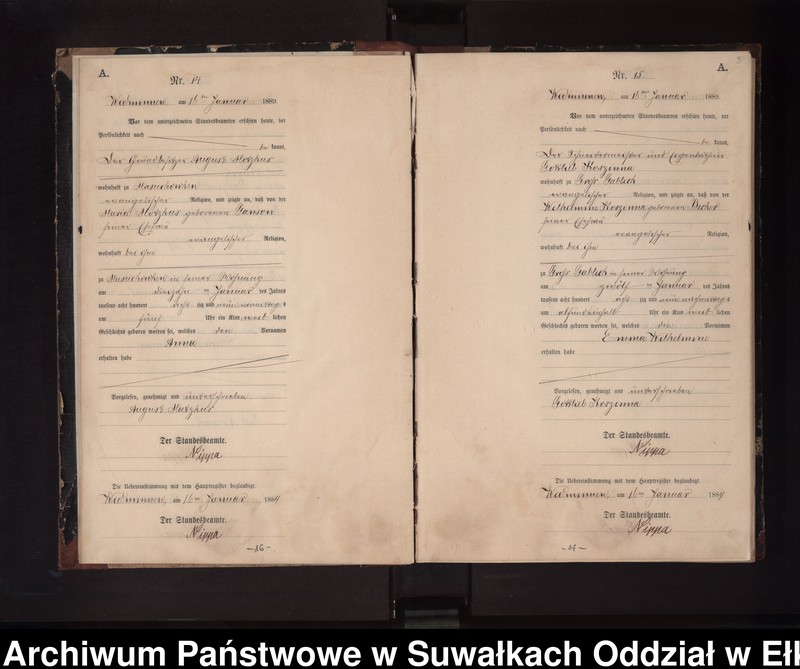 A.
Nr. 14
Widminnen am 16ten Januar 1889.
Vor dem unterzeichneten Standesbeamten erschien heute, der
Persönlichkeit nach
be kannt,
Der Grundbesitzer August
wohnhaft zu Masuchowken
evangelischer Religion, und zeigte an, daß von der
Maria geborenen
seiner Ehefrau
evangelischer Religion,
wohnhaft bei ihm
zu Masuchowken in seiner Wohnung
am dreizehn ten Januar des Jahres
tausend acht hundert acht zig und neun vormittag s
um fünf Uhr ein Kind weib lichen
Geschlechts geboren worden sei, welches den Vornamen
Anna
erhalten habe
Vorgelesen, genehmigt und unterschrieben
August
Der Standesbeamte.
Nippa
Die Uebereinstimmung mit dem Hauptregister beglaubigt.
Widminnen, am 16ten Januar 1889
Der Standesbeamte.
Nippa
—16—
A.
Nr. 15.
Widminnen, am 16ten Januar 1889.
Vor dem unterzeichneten Standesbeamten erschien heute, der
Persönlichkeit nach
be kannt,
Der Schneidermeister und Eigenkäthner
Gottlieb Koszinna
wohnhaft zu Groß Gablick
evangelischer Religion, und zeigte an, daß von der
Wilhelmine Koszinna geborenen
seiner Ehefrau
evangelischer Religion,
wohnhaft bei ihm
zu Groß Gablick in seiner Wohnung
am zwölf ten Januar des Jahres
tausend acht hundert acht zig und neun nachmittag s
um Uhr ein Kind weib lichen
Geschlechts geboren worden sei, welches die Vornamen
Emma Wilhelmine
erhalten habe
Vorgelesen, genehmigt und unterschrieben
Gottlieb Koszinna
Der Standesbeamte.
Nippa
Die Uebereinstimmung mit dem Hauptregister beglaubigt.
Widminnen, am 16ten Januar 1889
Der Standesbeamte.
Nippa
Archiwum Państwowe w Suwałkach Oddział w Eł